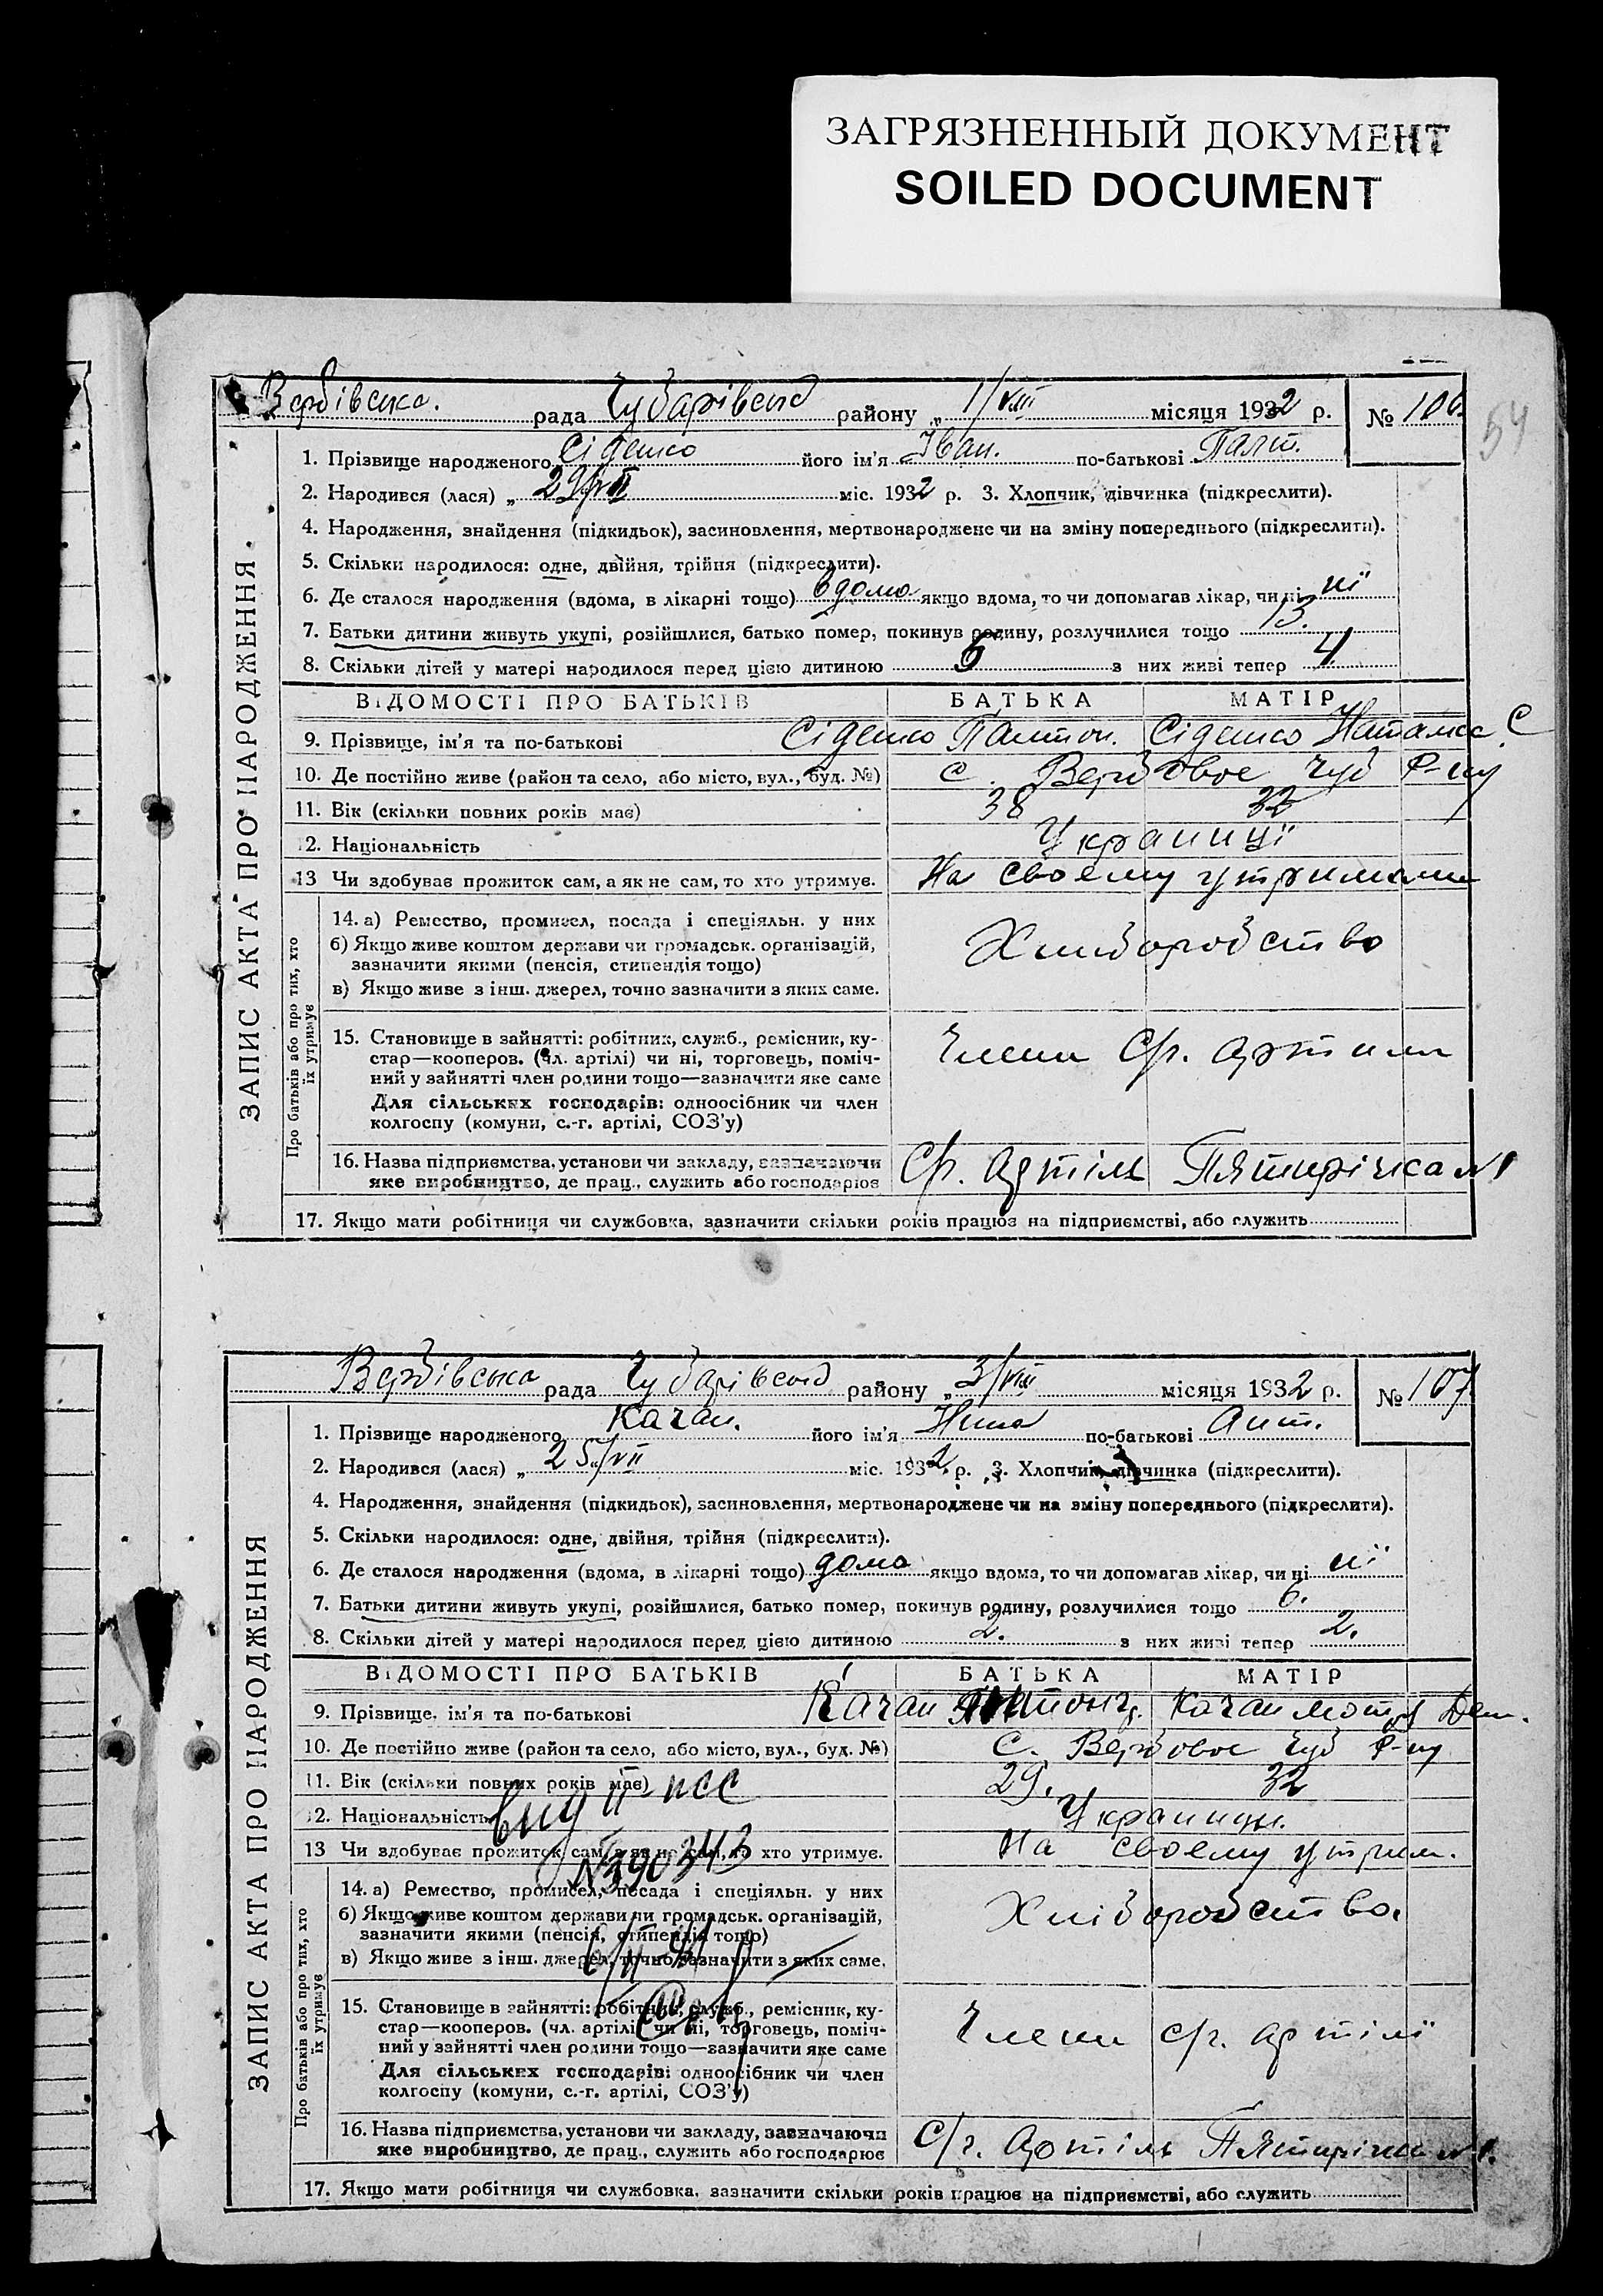 ЗАГРЯЗНЕННЫЙ ДОКУМЕНТ
SOILED DOCUMENT
54
Вербівська. рада Чубарівськ району „ 1/VIII місяця 1932 р. № 106.
ЗАПИС АКТА ПРО НАРОДЖЕННЯ
1. Прізвище народженого Сіденко його ім'я Іван. по-батькові
2. Народився (лася) „ 29/VII міс. 1932 р. 3. Хлопчик, дівчинка (підкреслити).
4. Народження, знайдення (підкидьок), засиновлення, мертвонароджене чи на зміну попереднього (підкреслити).
5. Скільки народилося: одне, двійня, трійня (підкреслити).
6. Де сталося народження (вдома, в лікарні тощо) вдома якщо вдома, то чи допомагав лікар, чи ні ні
7. Батьки дитини живуть укупі, розійшлися, батько помер, покинув родину, розлучилися тощо 13.
8. Скільки дітей у матері народилося перед цією дитиною 5 з них живі тепер 4
ВІДОМОСТІ ПРО БАТЬКІВ БАТЬКА МАТІР
9. Прізвище, ім'я та по-батькові Сіденко Сіденко Наталка С
10. Де постійно живе (район та село, або місто, вул., буд. №) с. Вербовое Чуб Р-ну
11. Вік (скільки повних років має) 38 32
12. Національність Українці
13 Чи здобуває прожиток сам, а як не сам, то хто утримує. На своему утриманні
Про батьків або про тих, хто їх утримує
14. а) Ремество, промисел, посада і спеціяльн. у них
б) Якщо живе коштом держави чи громадськ. організацій,
зазначити якими (пенсія, стипендія тощо)
Хліборобство
в) Якщо живе з інш. джерел, точно зазначити з яких саме.
15. Становище в зайнятті: робітник, служб., ремісник, ку-
стар—кооперов. (чл. артілі) чи ні, торговець, поміч-
Члени С/г. артили
ний у зайнятті член родини тощо—зазначити яке саме
Для сільських господарів: одноосібник чи член
колгоспу (комуни, с.-г. артілі, СОЗ'у)
16. Назва підприємства, установи чи закладу, зазначаючи
яке виробництво, де прац., служить або господарює С/г. артіль Пятирічка №1
17. Якщо мати робітниця чи службовка, зазначити скільки років працює на підприємстві, або служить
Вербівська рада Чубарівськ району „ 3/VIII місяця 1932 р. № 107.
ЗАПИС АКТА ПРО НАРОДЖЕННЯ
1. Прізвище народженого Качан. його ім'я Нина по-батькові Ант.
2. Народився (лася) „ 25/VII міс. 1932 р. 3. Хлопчик, дівчинка (підкреслити).
4. Народження, знайдення (підкидьок), засиновлення, мертвонароджене чи на зміну попереднього (підкреслити).
5. Скільки народилося: одне, двійня, трійня (підкреслити).
6. Де сталося народження (вдома, в лікарні тощо) дома якщо вдома, то чи допомагав лікар, чи ні ні
7. Батьки дитини живуть укупі, розійшлися, батько помер, покинув родину, розлучилися тощо 6.
8. Скільки дітей у матері народилося перед цією дитиною 2. з них живі тепер 2.
ВІДОМОСТІ ПРО БАТЬКІВ БАТЬКА МАТІР
9. Прізвище, ім'я та по-батькові Качан Качан Мотря Дем.
10. Де постійно живе (район та село, або місто, вул., буд. №) с. Вербовое Чуб Р-ну
11. Вік (скільки повних років має) 29. 32
12. Національність Українци.
13 Чи здобуває прожиток сам, а як не сам, то хто утримує. На своему утрим.
№390343
Про батьків або про тих, хто їх утримує
14. а) Ремество, промисел, посада і спеціяльн. у них
б) Якщо живе коштом держави чи громадськ. організацій,
зазначити якими (пенсія, стипендія тощо)
Хліборобство.
в) Якщо живе з інш. джерел, точно зазначити з яких саме.
15. Становище в зайнятті: робітник, служб., ремісник, ку-
стар—кооперов. (чл. артілі) чи ні, торговець, поміч-
Члени с/г. артілі
ний у зайнятті член родини тощо—зазначити яке саме
Для сільських господарів: одноосібник чи член
колгоспу (комуни, с.-г. артілі, СОЗ'у)
16. Назва підприємства, установи чи закладу, зазначаючи
яке виробництво, де прац., служить або господарює С/г. артіль Пятирічка №1.
17. Якщо мати робітниця чи службовка, зазначити скільки років працює на підприємстві, або служить